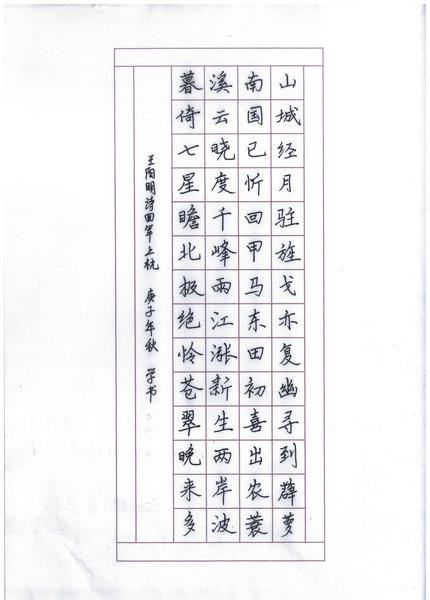 山城经月驻旌戈亦复幽寻到薜萝
南国已忻回甲马东田初喜出农蓑
溪云晓度千峰雨江涨新生两岸波
暮倚七星瞻北极绝怜苍翠晚来多
王阳明诗回军上杭 庚子年秋 学书